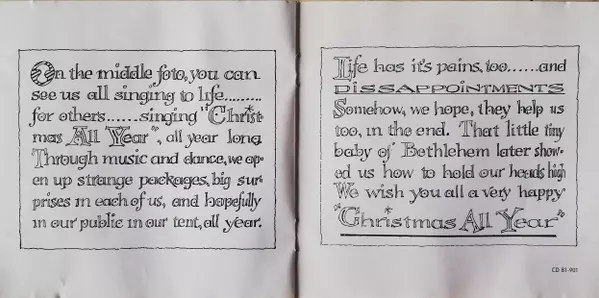 On the middle foto, you can
see us all singing to life.........
for others......singing "Christ-
mas All Year", all year long
Through music and dance, we op-
en up strange packages, big sur-
prises in each of us, and hopefully
in our public in our tent, all year.
Life has it's pains, too......and
DISSAPPOINTMENTS
Somehow, we hope, they help us
too, in the end. That little tiny
baby of Bethlehem later show-
ed us how to hold our heads high
We wish you all a very happy
"Christmas All Year"
CD 81-901